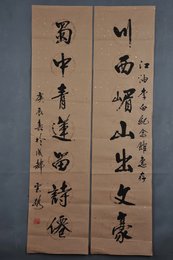 江油李白纪念馆惠存
川西嵋山出文豪
蜀中青莲留詩僊
庚辰春於成都